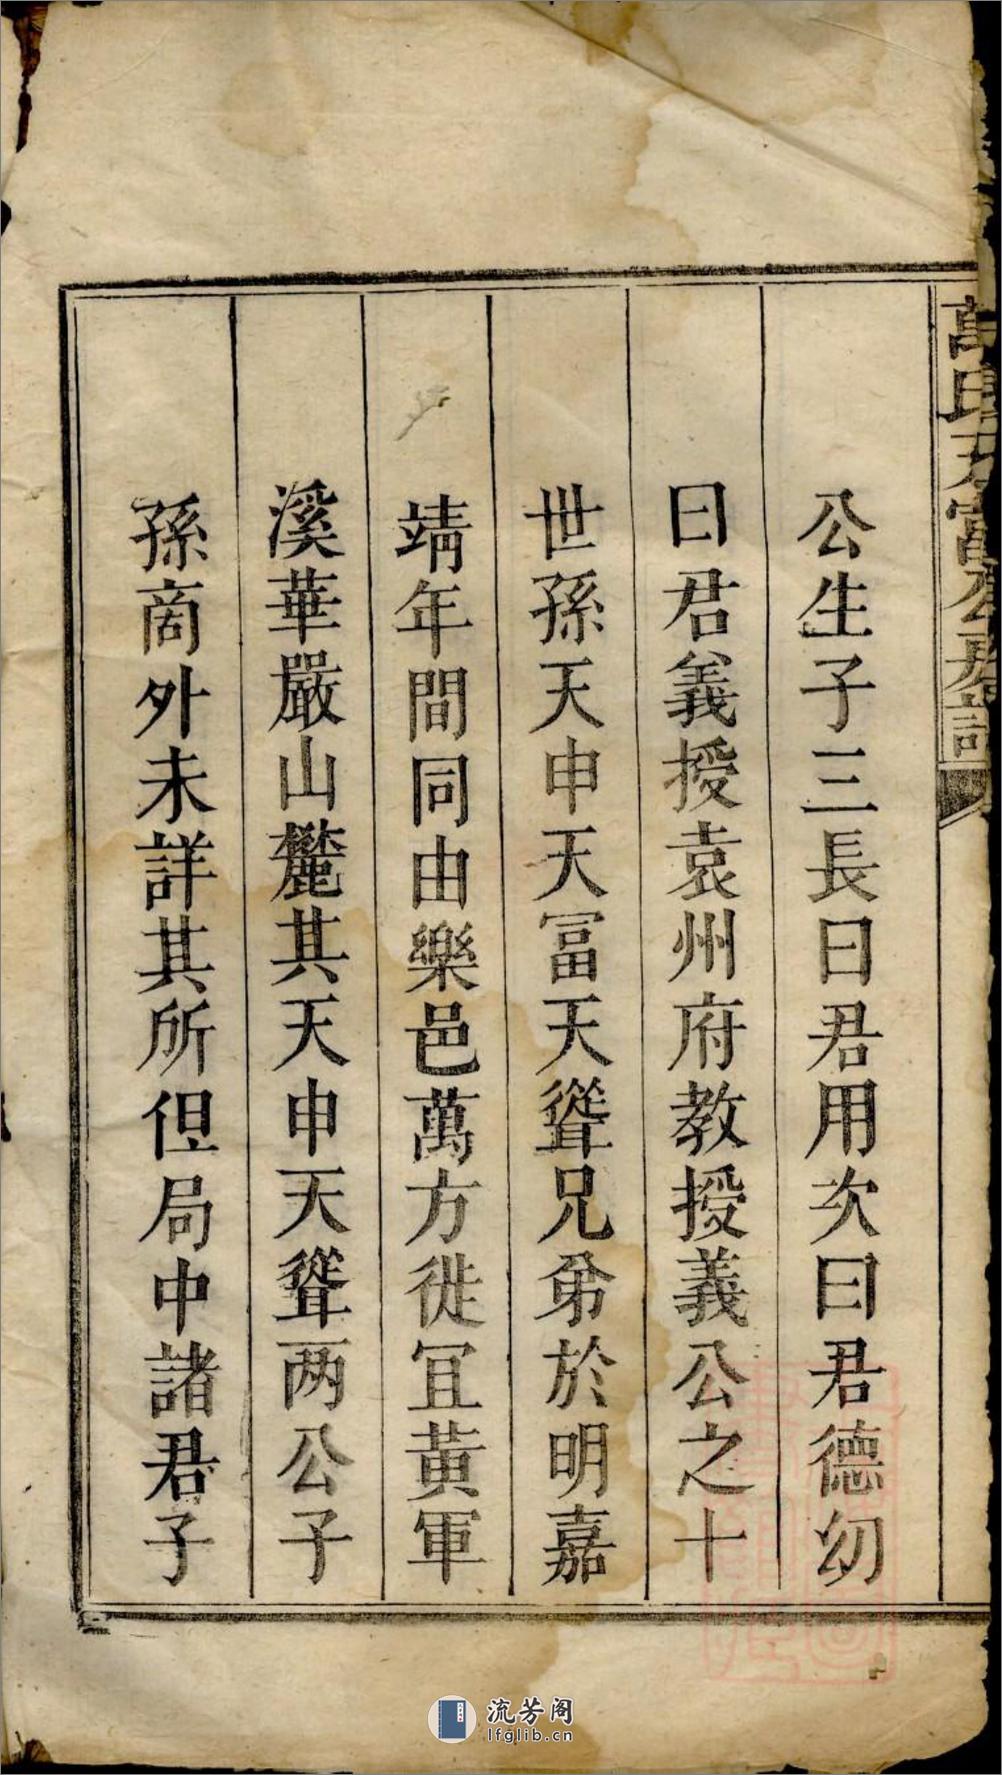 萬氏天富公房譜
公生子三長曰君用次曰君德幼
曰君義授袁州府教授義公之十
世孫天申天富天聳兄弟於明嘉
靖年間同由樂邑萬方徙宜黃軍
溪華嚴山麓其天申天聳两公子
孫商外未詳其所但局中諸君子
流芳阁
lfglib.cn